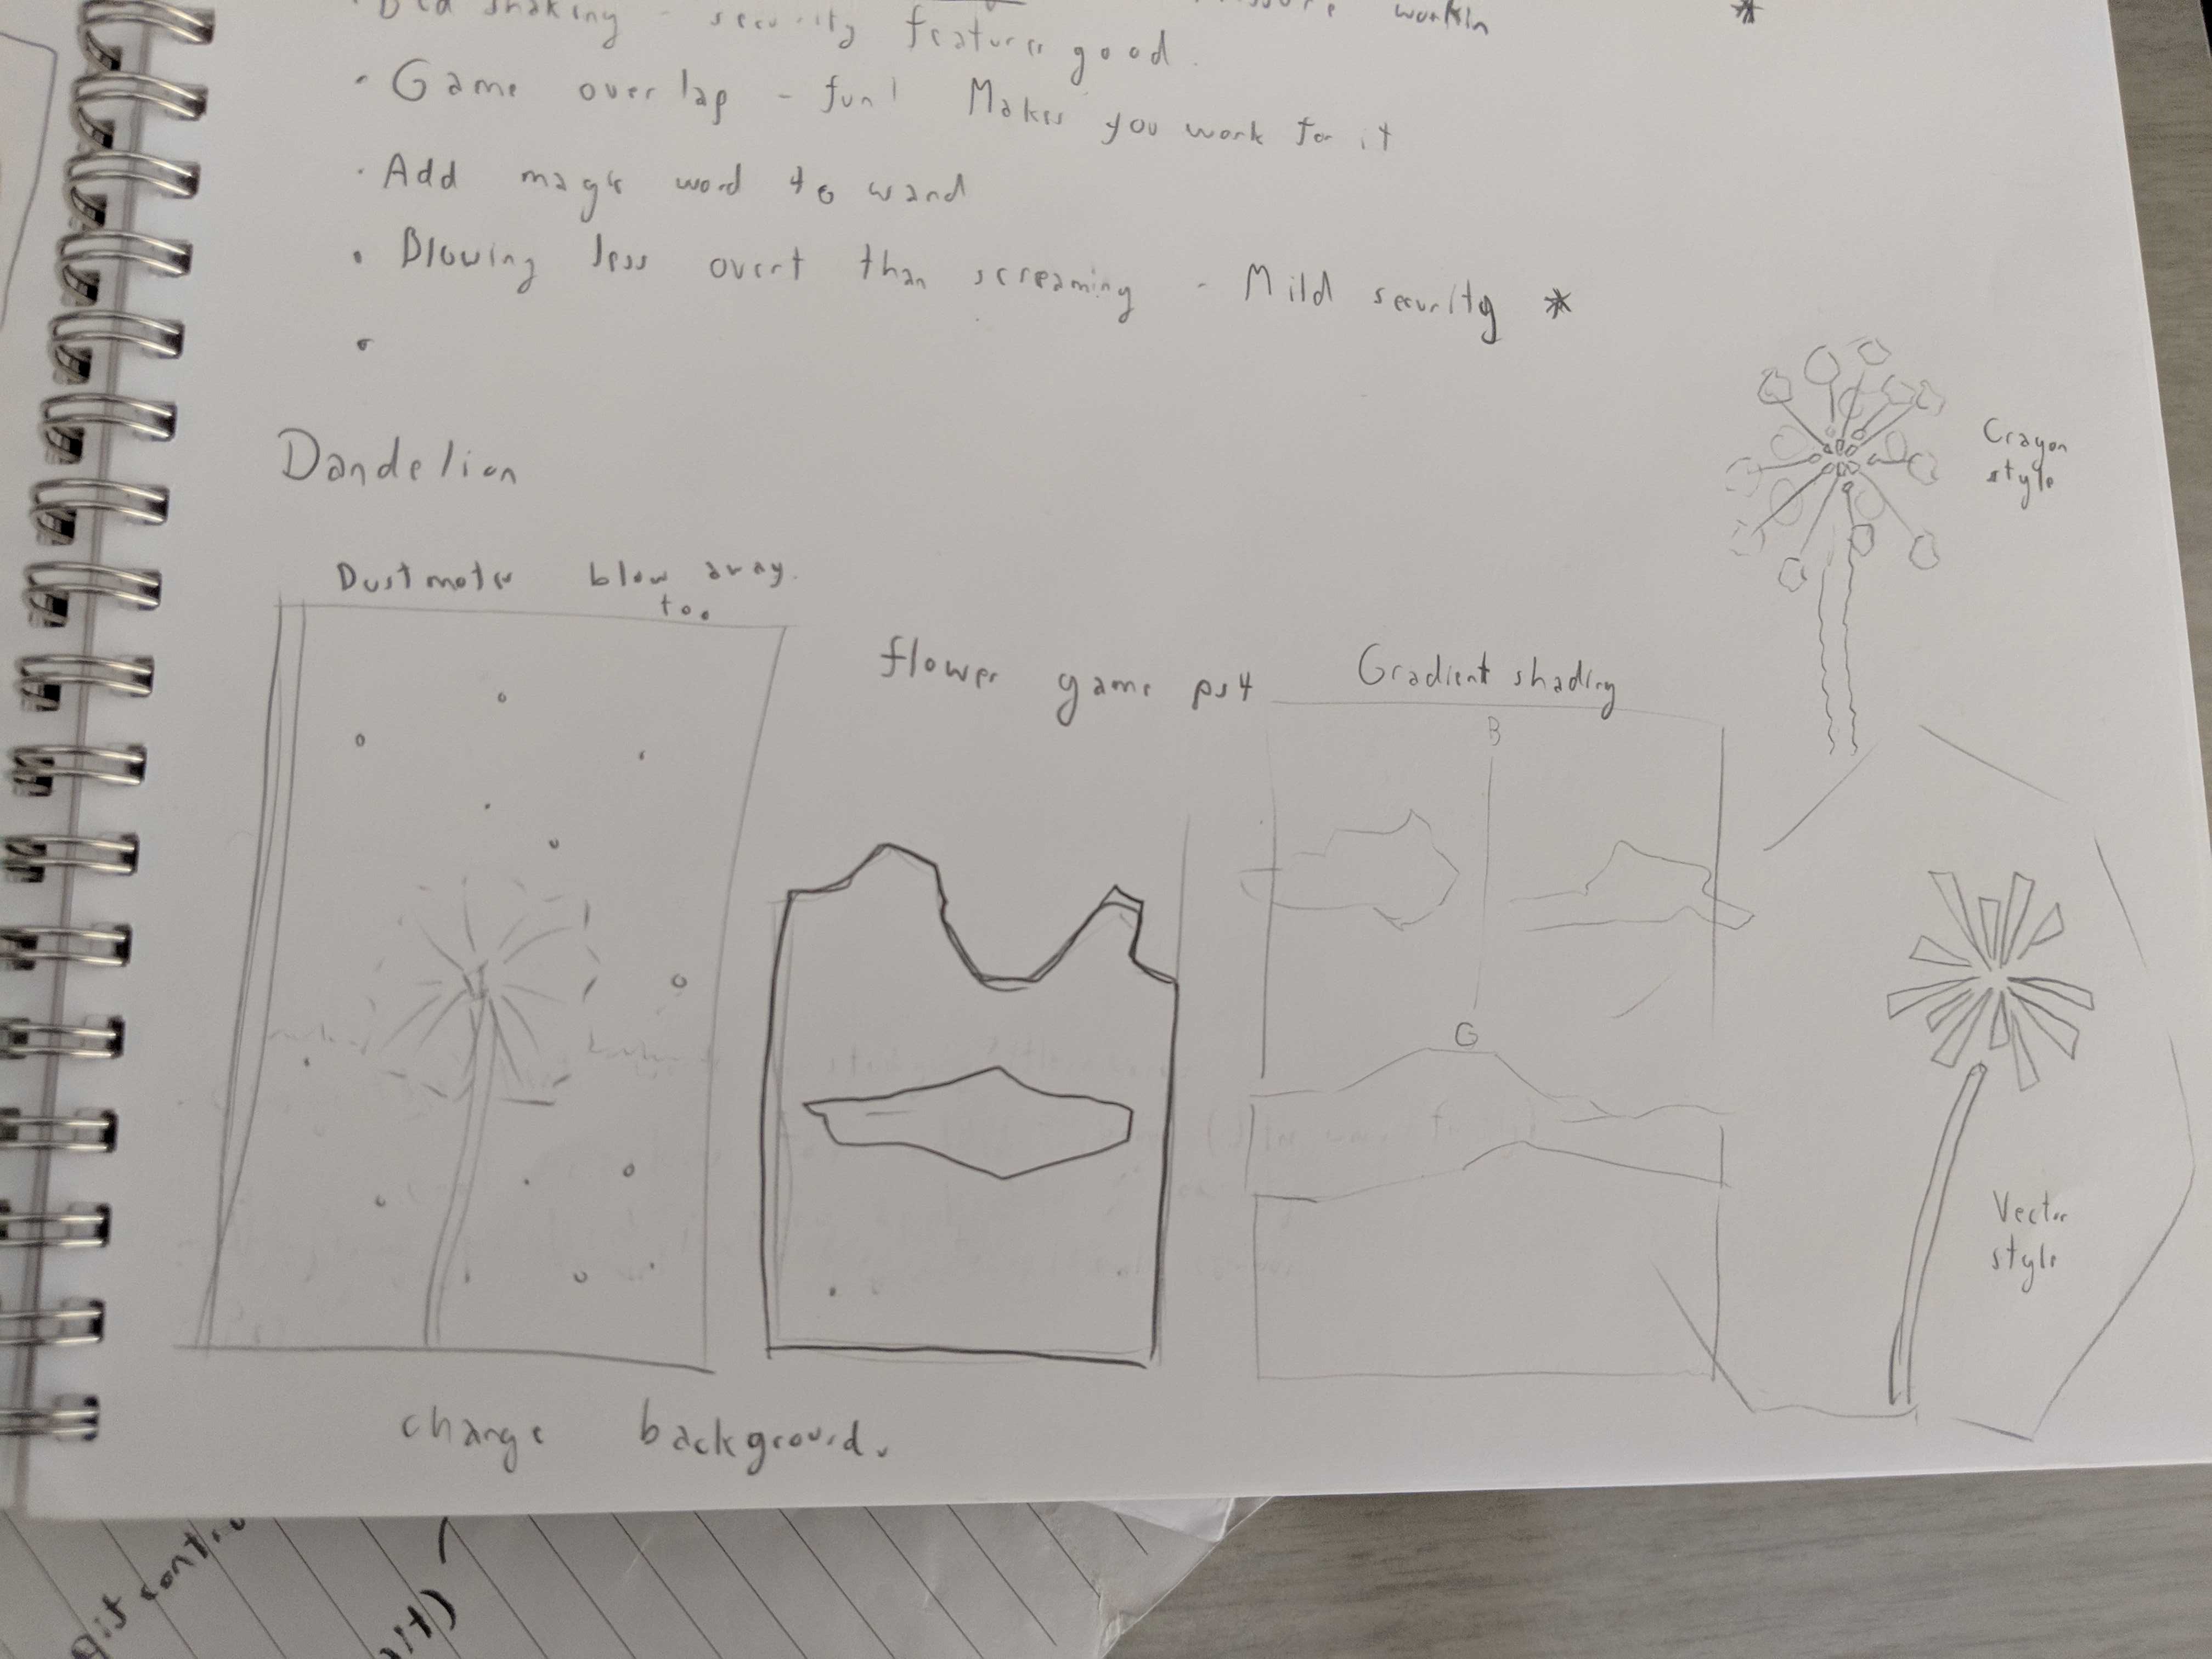 shaking - security features good.
• Game overlap - fun! Makes you work for it
• Add magic word to wand
• Blowing less overt than screaming - Mild security *
•
Crayon
style
Dandelion
Dustmotes blow away.
too
flower game ps4
Gradient shading
B
G
Vector
style
change background.